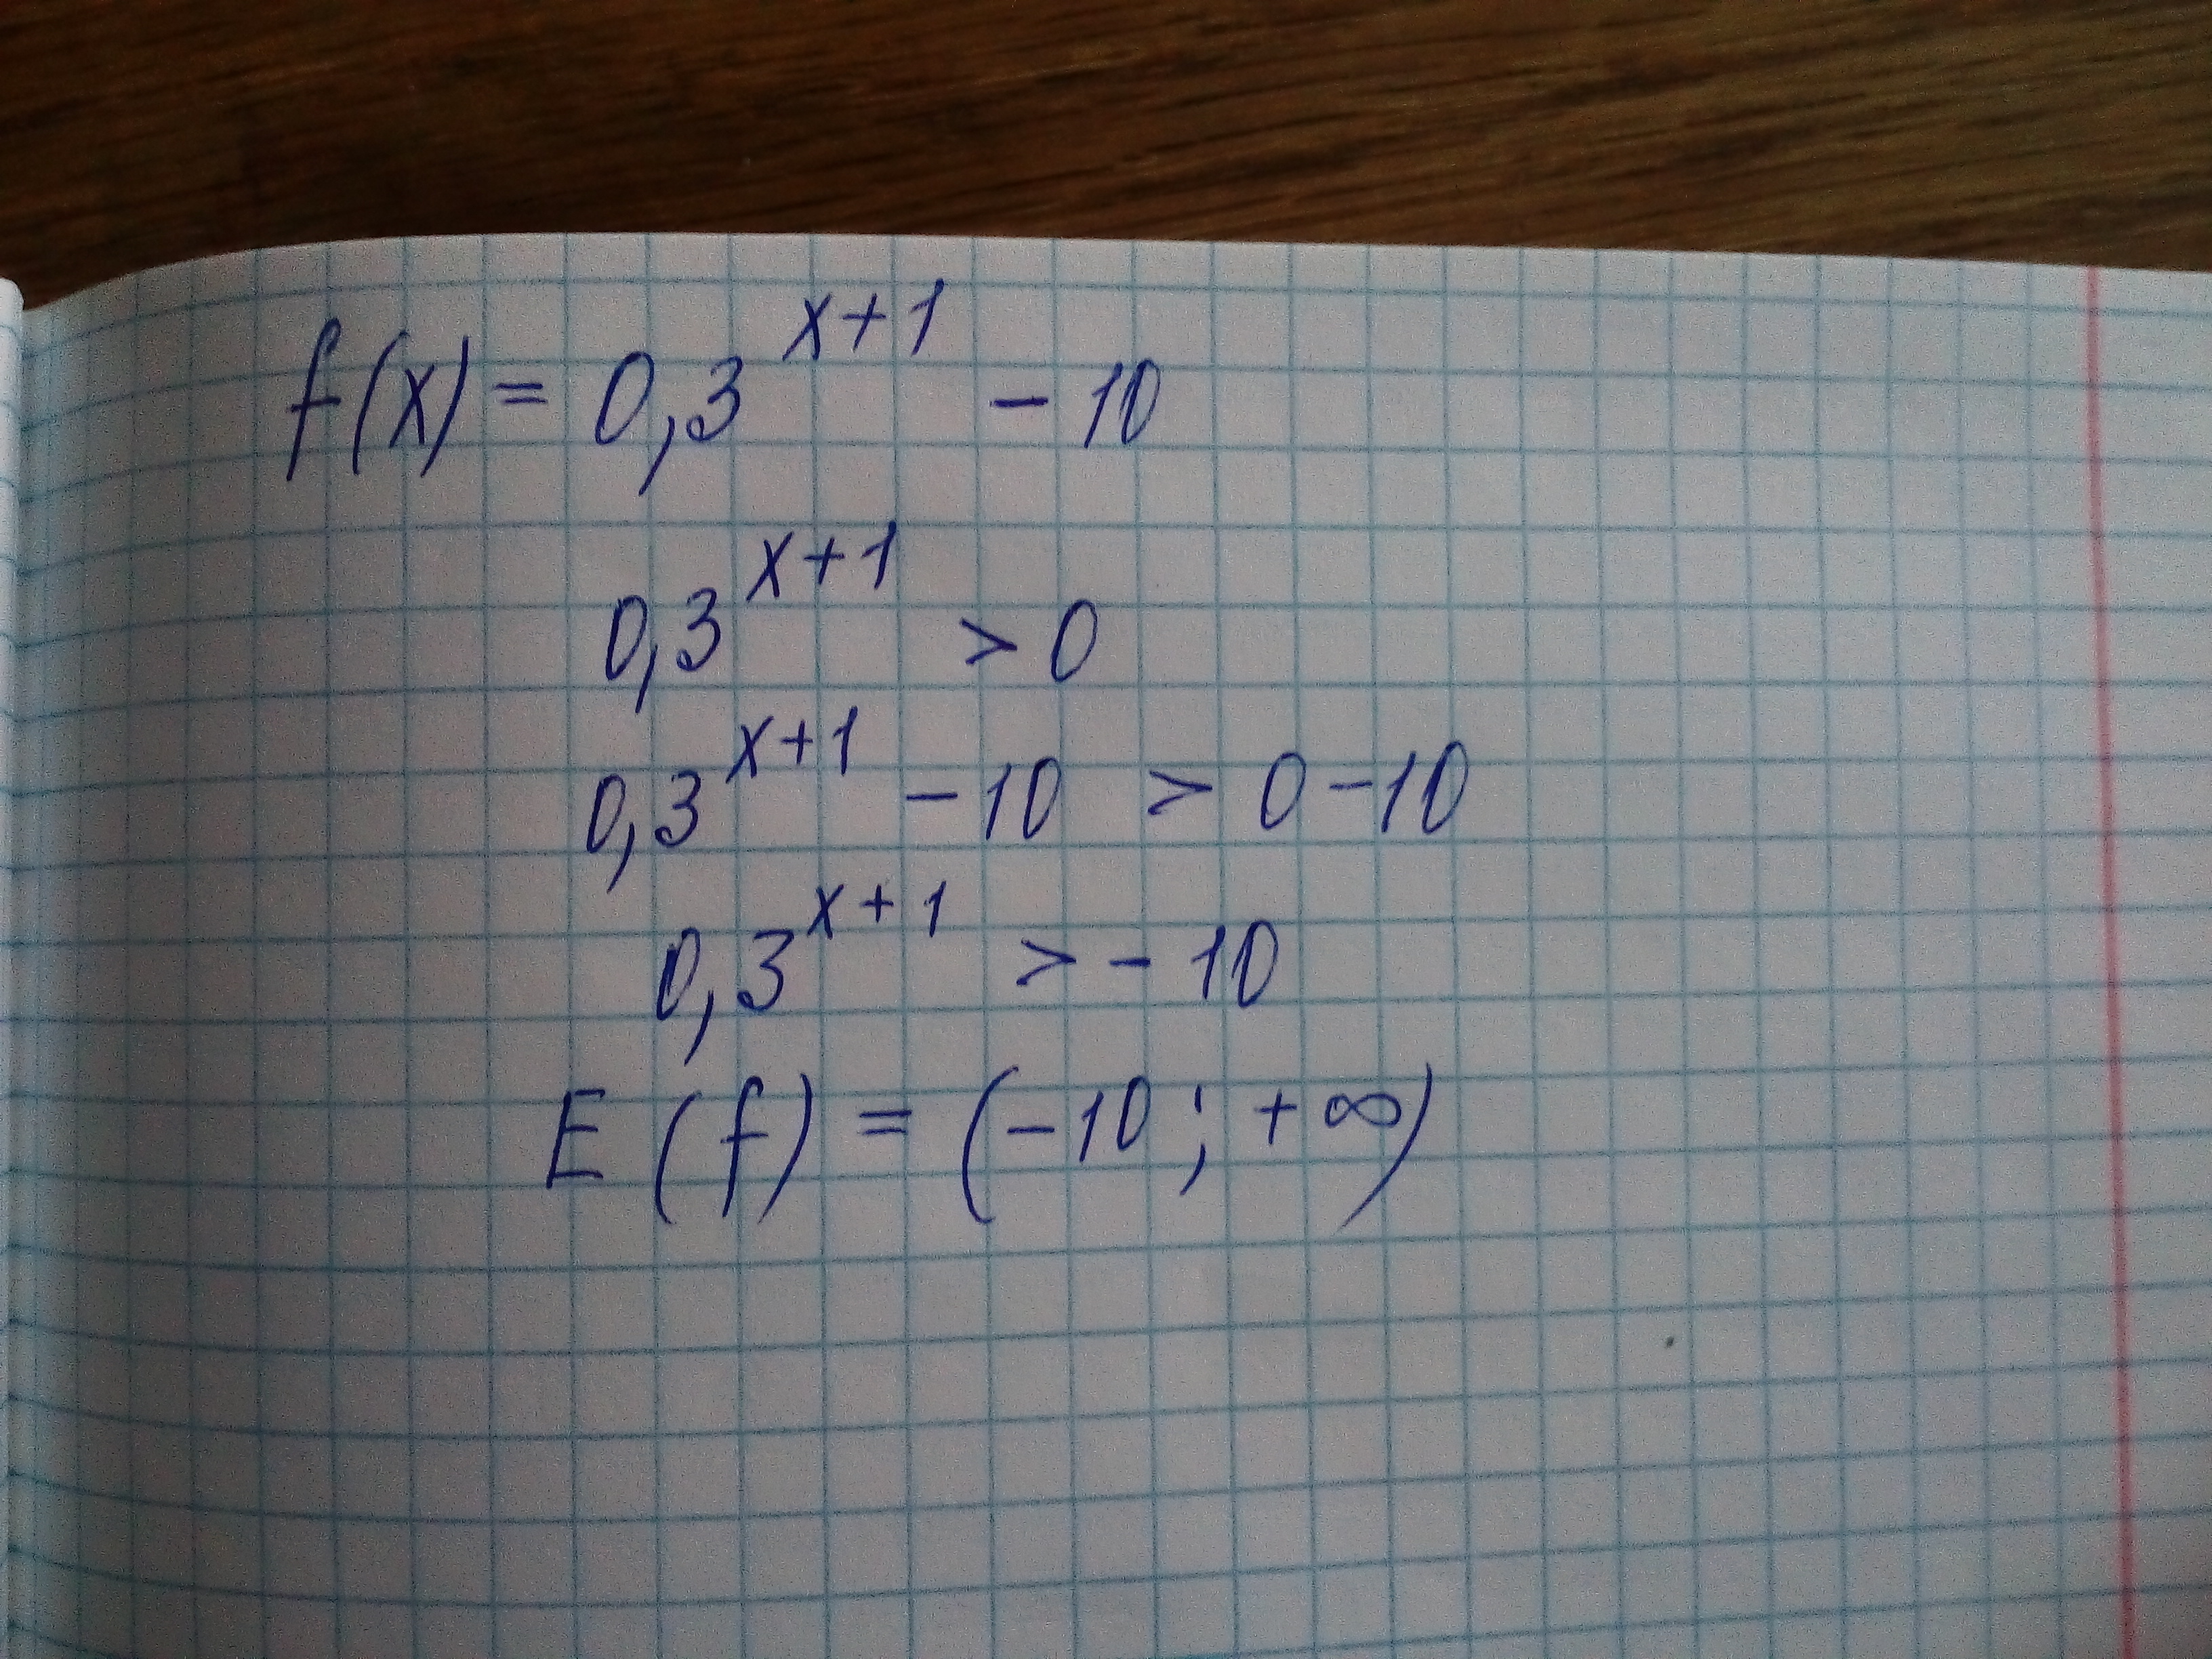 f(x) = 0,3^{x+1} - 10
0,3^{x+1} > 0
0,3^{x+1} - 10 > 0 - 10
0,3^{x+1} > - 10
E (f) = (-10; +∞)